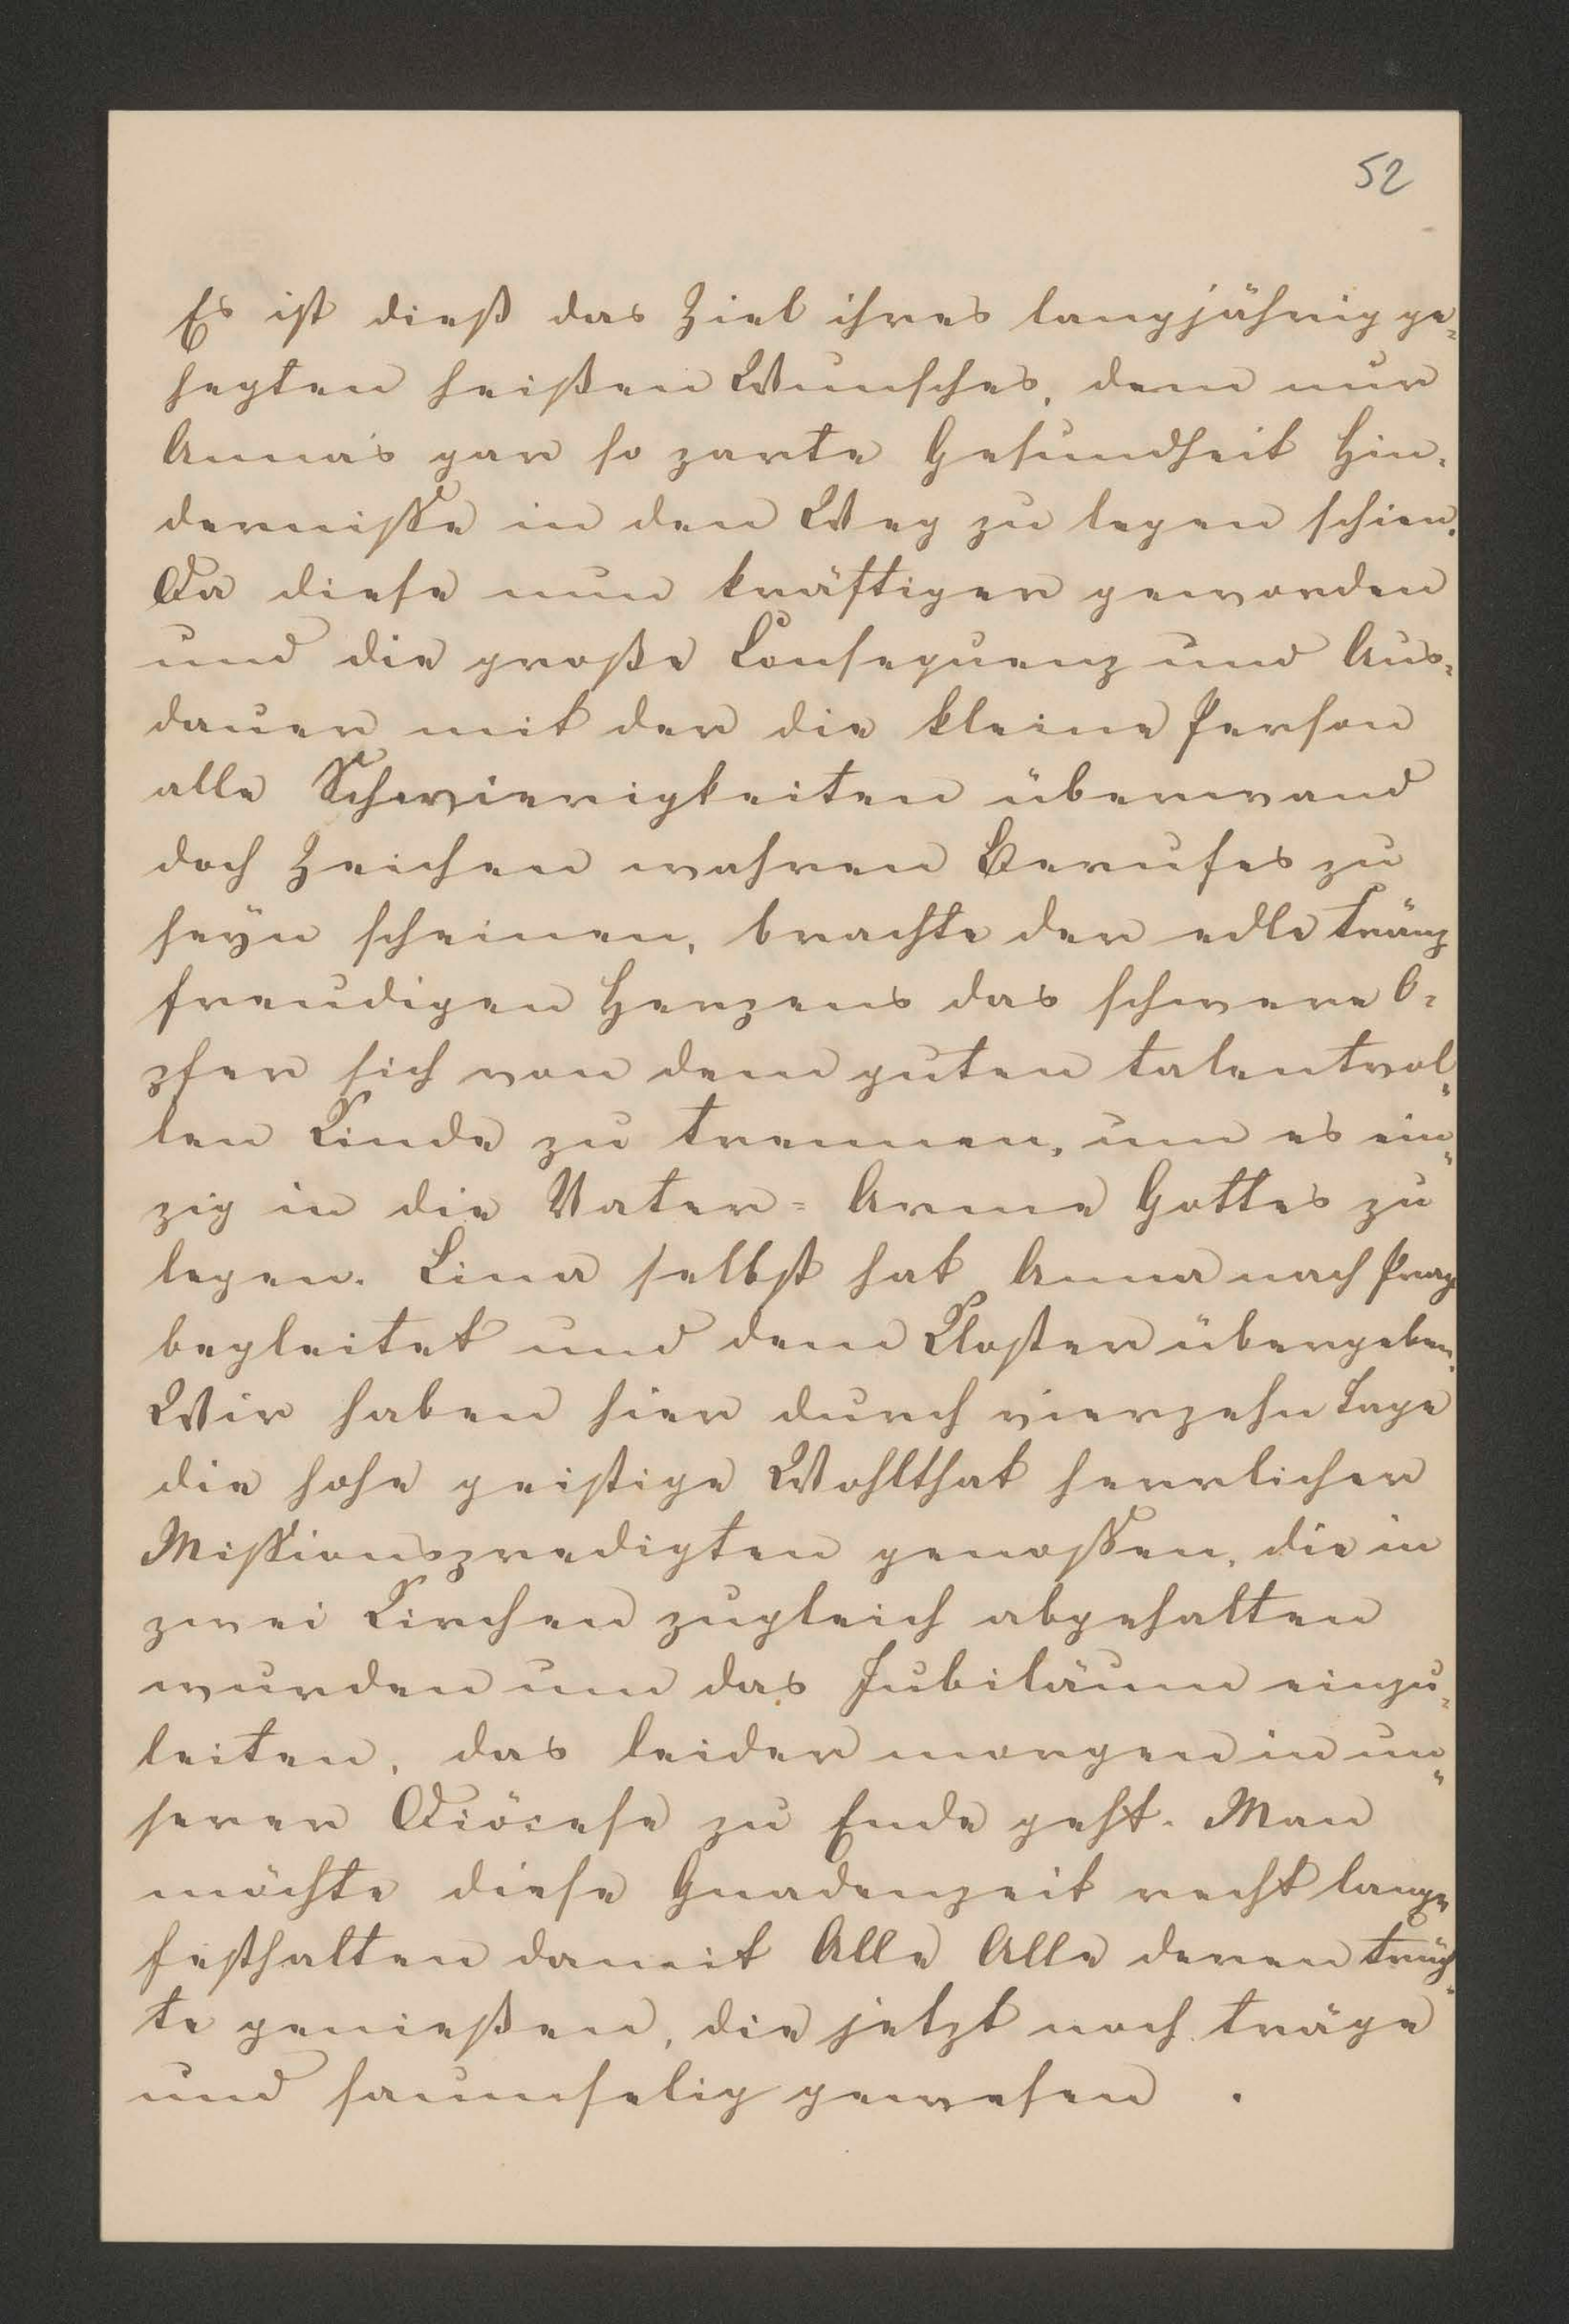 52
Es ist dieß das Ziel ihres langjährig ge=
hegten heißen Wunsches, dem nur
Anna's gar so zarte Gesundheit Hin=
dernisse in den Weg zu legen schien.
Da diese nun kräftiger geworden
und die große Consequenz und Aus=
dauer mit der die kleine Person
alle Schwierigkeiten überwand
doch Zeichen wahren Berufes zu
seyn scheinen, brachte der edle Fränz
freudigen Herzens das schwere O=
pfer sich von dem guten talentvol=
len Kinde zu trennen, um es ein=
zig in die Vater= Arme Gottes zu
legen. Lina selbst hat Anna nach Prag
begleitet und dem Kloster übergeben.
Wir haben hier durch vierzehn Tage
die hohe geistige Wohlthat herrlicher
Missionspredigten genossen, die in
zwei Kirchen zugleich abgehalten
wurden um das Jubiläum einzu=
leiten, das leider morgen in un=
serer Diöcese zu Ende geht. Man
möchte diese Gnadenzeit recht lange
festhalten damit Alle Alle deren Früch=
te genießen, die jetzt noch träge
und saumselig gewesen .